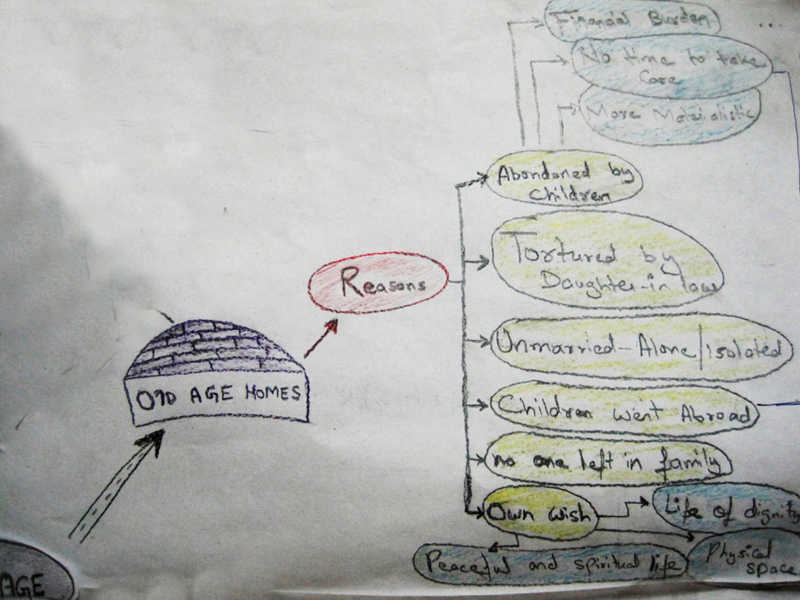 Financial Burden
...
No time to take
Care
More Materialistic
Abandoned by
Children
Tortured by
Daughter-in law
Reasons
Unmarried-Alone/isolated
OlD AGE HOMES
Children went Abroad
no one left in family
Own wish
Life of dignity
Peaceful and spiritual life
Physical
space
AGE